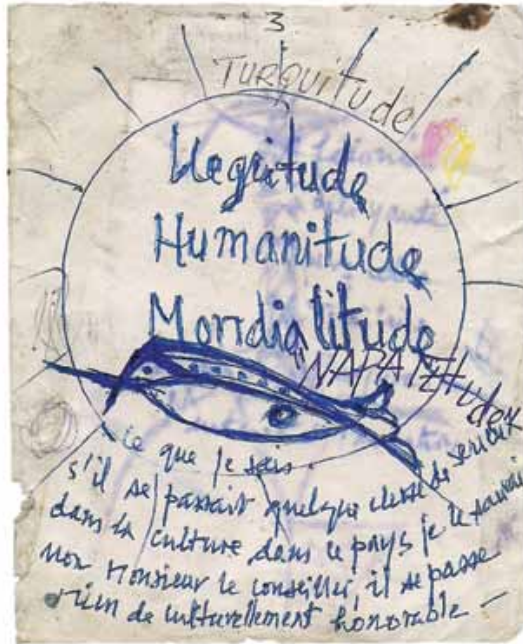 3
TURQUITUDE
Negritude
Humanitude
Mondialitude
NAPATÉtude
ce que je sais.
s'il se passait quelque chose de serieux
dans la culture dans ce pays je le saurais
Non Monsieur le conseiller, il se passe
rien de culturellement honorable —